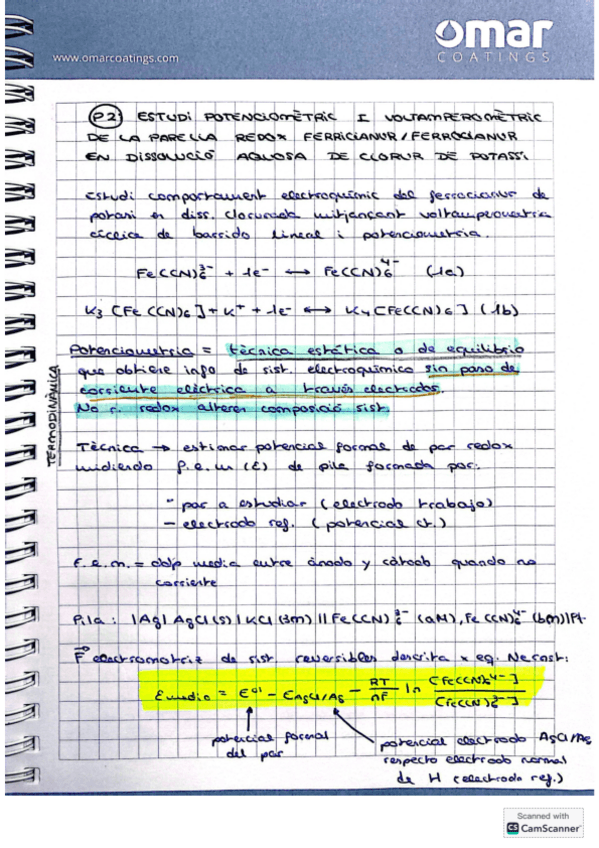 omar
COATINGS
www.omarcoatings.com
P.2 ESTUDI POTENCIOMÈTRIC I VOLTAMPEROMÈTRIC
DE LA PARELLA REDOX FERRICIANUR/FERROCIANUR
EN DISSOLUCIÓ AQUOSA DE CLORUR DE POTASSI
Estudi comportament electroquímic del ferrocianur de
potasi en diss. clorurada mitjançant voltamperometria
cíclica de barrido lineal i potenciometria.
Fe(CN)₆³⁻ + 1e⁻ ↔ Fe(CN)₆⁴⁻ (1a)
K₃[Fe(CN)₆] + K⁺ + 1e⁻ ↔ K₄[Fe(CN)₆] (1b)
Potenciometria = tècnica estática o de equilibrio
que obtiene info de sist. electroquímico sin paso de
corriente eléctrica a través electrodos.
No r. redox alteren composició sist.
TERMODINÀMICA
Tècnica → estimar potencial formal de par redox
midiendo f.e.m (E) de pila formada por:
- par a estudiar (electrodo trabajo)
- electrodo ref. (potencial ct.)
F.e.m. = ddp media entre ánodo y cátodo quando no
corriente
Pila: |Ag|AgCl(s)|KCl(3m)||Fe(CN)₆³⁻(aM), Fe(CN)₆⁴⁻(bm)|Pt.
F electromotriz de sist reversibles descrita x eq. Nernst:
Emedia = E⁰' - EAgCl/Ag - RT/nF ln [Fe(CN)₆⁴⁻]/[Fe(CN)₆³⁻]
potencial formal
del par
potencial electrodo AgCl/Ag
respecto electrodo normal
de H (electrodo ref.)
Scanned with
CS CamScanner